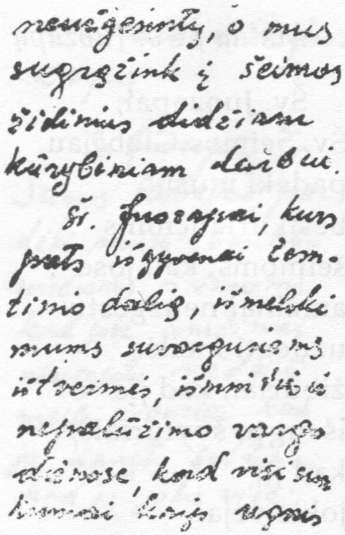 neužgesintų, o mus
sugrąžink į šeimos
židinius didžiam
kūrybiniam darbui.
Šv. Juozapai, kurs
pats išgyvenai trem-
timo dalią, išmelski
mums suvargusiems
ištvermės, išminties
nepalūžimo vargo
dienose, kad visi
kaip ugnis